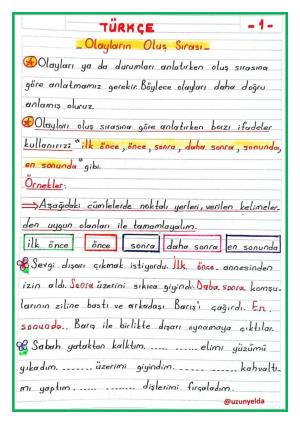 TÜRKÇE
- 1 -
- Olayların Oluş Sırası -
Olayları ya da durumları anlatırken oluş sırasına
göre anlatmamız gerekir. Böylece olayları daha doğru
anlamış oluruz.
Olayları oluş sırasına göre anlatırken bazı ifadeler
kullanırız, "ilk önce, önce, sonra, daha sonra, sonunda,
en sonunda" gibi.
Örnekler:
Aşağıdaki cümlelerde noktalı yerleri, verilen kelimeler-
den uygun olanları ile tamamlayalım.
ilk önce önce sonra daha sonra en sonunda
Sevgi dışarı çıkmak istiyordu. İlk önce annesinden
izin aldı. Sonra üzerini sıkıca giyindi. Daha sonra komşu-
larının ziline bastı ve arkadaşı Barış'ı çağırdı. En
sonunda.. Barış ile birlikte dışarı oynamaya çıktılar.
Sabah yataktan kalktım. ........ elimi yüzümü
yıkadım. ........ üzerimi giyindim. ........ kahvaltı-
mı yaptım. ........ dişlerimi fırçaladım.
@uzunyelda